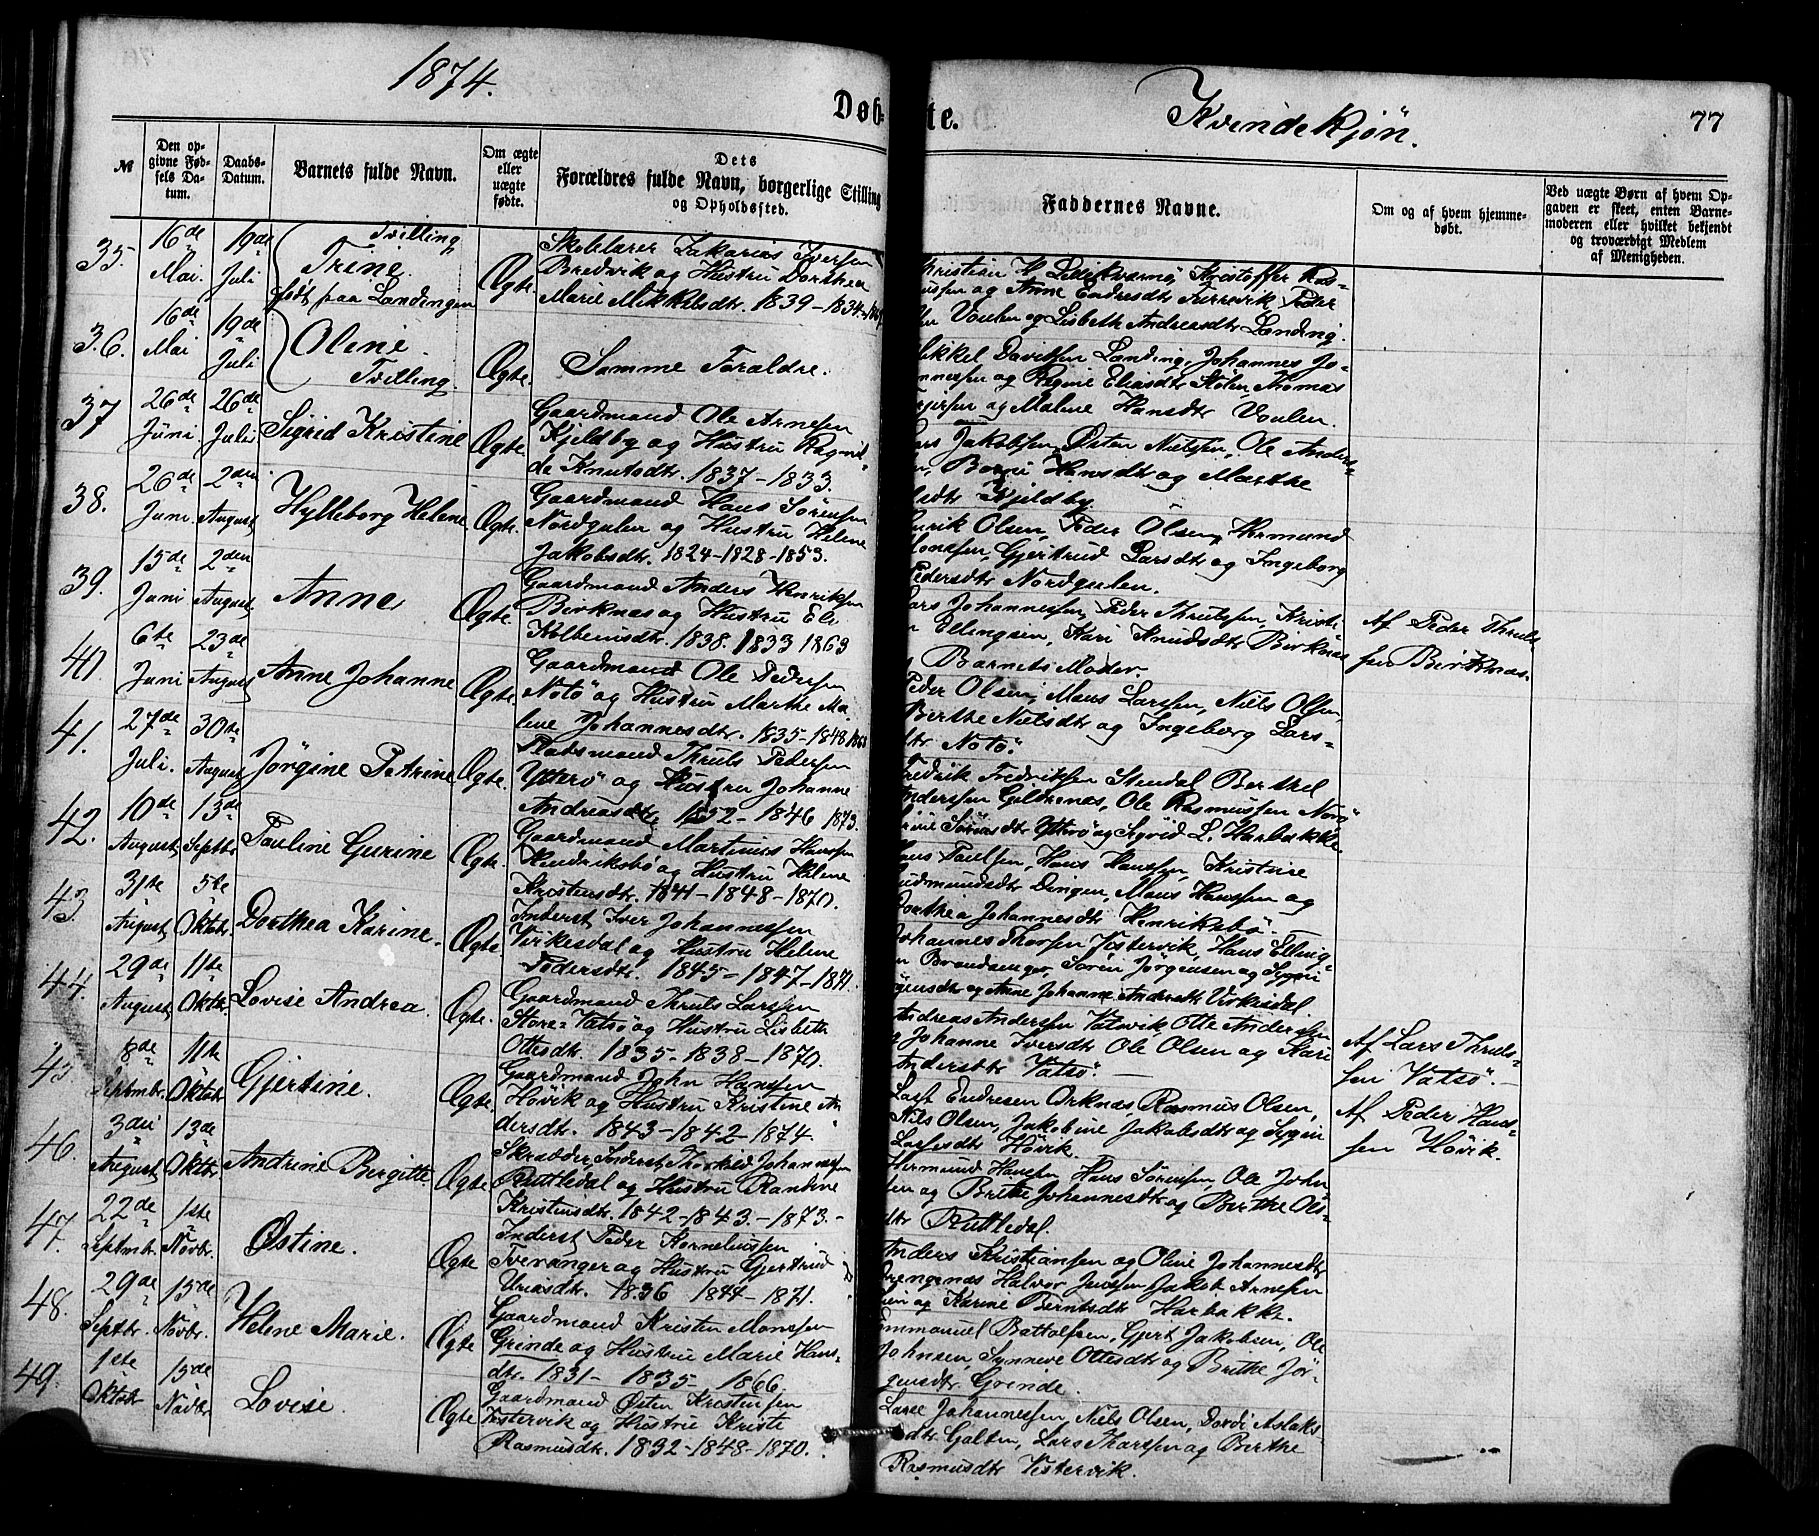 1874.
Døb-
te.
Kvindekjøn.
77
№
Den op-
givne Fød-
sels Da-
tum.
Daabs-
Datum.
Barnets fulde Navn.
Om ægte
eller
uægte
fødte.
Dets
Forældres fulde Navn, borgerlige Stilling
og Opholdssted.
Faddernes Navne.
Om og af hvem hjemme-
døbt.
Ved uægte Børn af hvem Op-
gaven er skeet, enten Barne-
moderen eller hvilket bekjendt
og troværdigt Medlem
af Menigheden.
35.
16de Mai.
19de Juli
Tvilling
Trine.
født paa Landingen
Ægte.
Skolelærer Zakarias Iversen
Bredvik og Hustru Dorthea
Marie Mikkelsdtr. 1839-1834-
Kristoffer Ras-
ssen og Anne Endresdtr Peder
Voulen og Lisbeth Andreasdtr Landing.
36.
16de Mai
19de Juli
Oline.
Tvilling.
Ægte.
Samme Forældre.
ikkel Davidsen Landing, Johannes Jo-
nnessen og Ragne Eliasdtr Stølen, Thomas
og Malene Hansdtr Voulen.
37
26de Juni
26de Juli
Sigrid Kristine
Ægte
Gaardmand Ole Arnesen
Kjeldby og Hustru Ragnil-
de Knutsdtr. 1837-1833
ars Jakobsen, Østen Nielsen, Ole Anders-
n, Hansdtr og Marthe
Kjeldby
38.
26de Juni.
2den August
Hylleborg Helene
Ægte.
Gaardmand Hans Sørensen
Nordgulen og Hustru Helene
Jakobsdtr. 1824-1828-1853.
nrik Olsen, Peder Olsen, Hermund
onessen, Gjertrud Larsdtr og Ingeborg
Pedersdtr Nordgulen.
39.
15de Juni
2den August
Anne
Ægte.
Gaardmand Anders Henriksen
Birknes og Hustru Eli
Kolbeinsdtr. 1838. 1833 1863
ars Johannessen, Peder Thrulssen, Kristi
n Ellingsen, Kari Knudsdtr Birknæs
Barnets Moder.
Af Peder Thruls
sen Birknæs.
40.
6te Juni
23de August
Anne Johanne
Ægte.
Gaardmand Ole Pedersen
Notø og Hustru Marthe Ma-
lene Johannesdtr. 1835-1848
Peder Olsen, Mons Larssen, Niels Olsen,
Berthe Nielsdtr og Ingeborg Lars-
dtr Notø.
41.
27de Juli.
30te August
Jørgine Petrine
Ægte.
Pladsmand Thruls Pedersen
Ytterø og Hustru Johanne
Andreasdtr 1852-1846 1873.
Fredrik Fredriksen Stendal Berthel
Anderssen Gildrenæs, Ole Rasmussen Norø
Ytterø og Sigrid L. Harbakke
42.
10de August
13de Septbr
Pauline Gurine
Ægte.
Gaardmand Martinus Hanssen
Hendriksbø og Hustru Helene
Kristensdtr. 1841-1848-1870.
ans Paulsen, Hans Hanssen, Kristine
udmundsdtr Dingen, Mons Hanssen og
Dorthea Johannesdtr Henriksbø.
43.
31te August
5te Oktobr.
Dorthea Karine.
Ægte
Inderst Iver Johannessen
Virkesdal og Hustru Helene
Pedersdtr. 1845-1847-1871.
Johannes Thorsen Vestervik, Hans Elling-
n Brandsanger, Søren Jørgensen og
og Anne Johanne Andersdtr Virkesdal
44.
29de August
11te Oktbr.
Lovise Andrea.
Ægte.
Gaardmand Thruls Larssen
Store-Vatsø og Hustru Lisbeth
Ottesdtr. 1835-1838-1870.
Andreas Anderssen Vatsvik, Otte Anderssen
og Johanne Iversdtr Ole Olsen og Kari
Andersdtr Vatsø.
Af Lars Thruls-
sen Vatsø.
45
8de Septmbr.
11te Oktobr
Gjertine.
Ægte.
Gaardmand John Hanssen
Høvik og Hustru Kristine An
dersdtr. 1843-1842-1874.
Lasse Endresen Orknæs, Rasmus Olsen,
Nils Olsen, Jakobine Jakobsdtr og
Lassesdtr Høvik.
Af Peder Hans-
sen Høvik.
46.
3die August
13de Oktbr
Andrine Bergitte
Ægte
Skrædder, Inderst Thorkild Johannessen
Rutledal og Hustru Randine
Kristensdtr. 1842-1843.-1873.-
Hermund Hanssen, Hans Sørensen, Ole John
sen og Brithe Johannesdtr og Berthe Ols-
dtr Rutledal.
47.
22de Septmbr.
1ste Novbr.
Østine.
Ægte
Inderst Peder Korneliussen
Tveranger og Hustru Gjertrud
Uriasdtr. 1836 1844-1871.
Anders Kristiansen og Oline Johannesdtr
rengenæs Halvor Jenssen Jakob Arnesen
og Karine Berntsdtr Harbakke.
48.
29de Septbr.
15de Novbr.
Helene Marie.
Ægte
Gaardmand Kristen Monssen
Grinde og Hustru Marie Hans-
dtr. 1831-1835-1866.
mmanuel Battolfsen, Gjert Jakobsen, Ole
Johnsen, Synneve Ottesdtr og Brithe Jør-
gensdtr Grinde.
49.
1ste Oktobr
15de Novbr
Lovise.
Ægte
Gaardmand Østen Kristensen
Vestervik og Hustru Kriste
Rasmusdtr. 1832-1848-1870.
Lasse Johannessen, Niels Olsen, Dordi Aslaks-
dtr Galten, Lars Tharssen og Berthe
Rasmusdtr Vestervik.